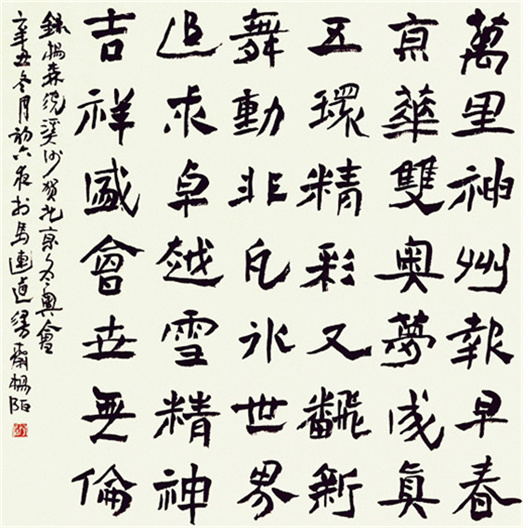 萬里神州報早春
京華雙奧夢成真
五環精彩又翻新
舞動非凡冰世界
追求卓越雪精神
吉祥盛會世無倫
錄楊森浣溪沙賀北京冬奧會
辛丑冬月初六夜於馬連道 楊陌